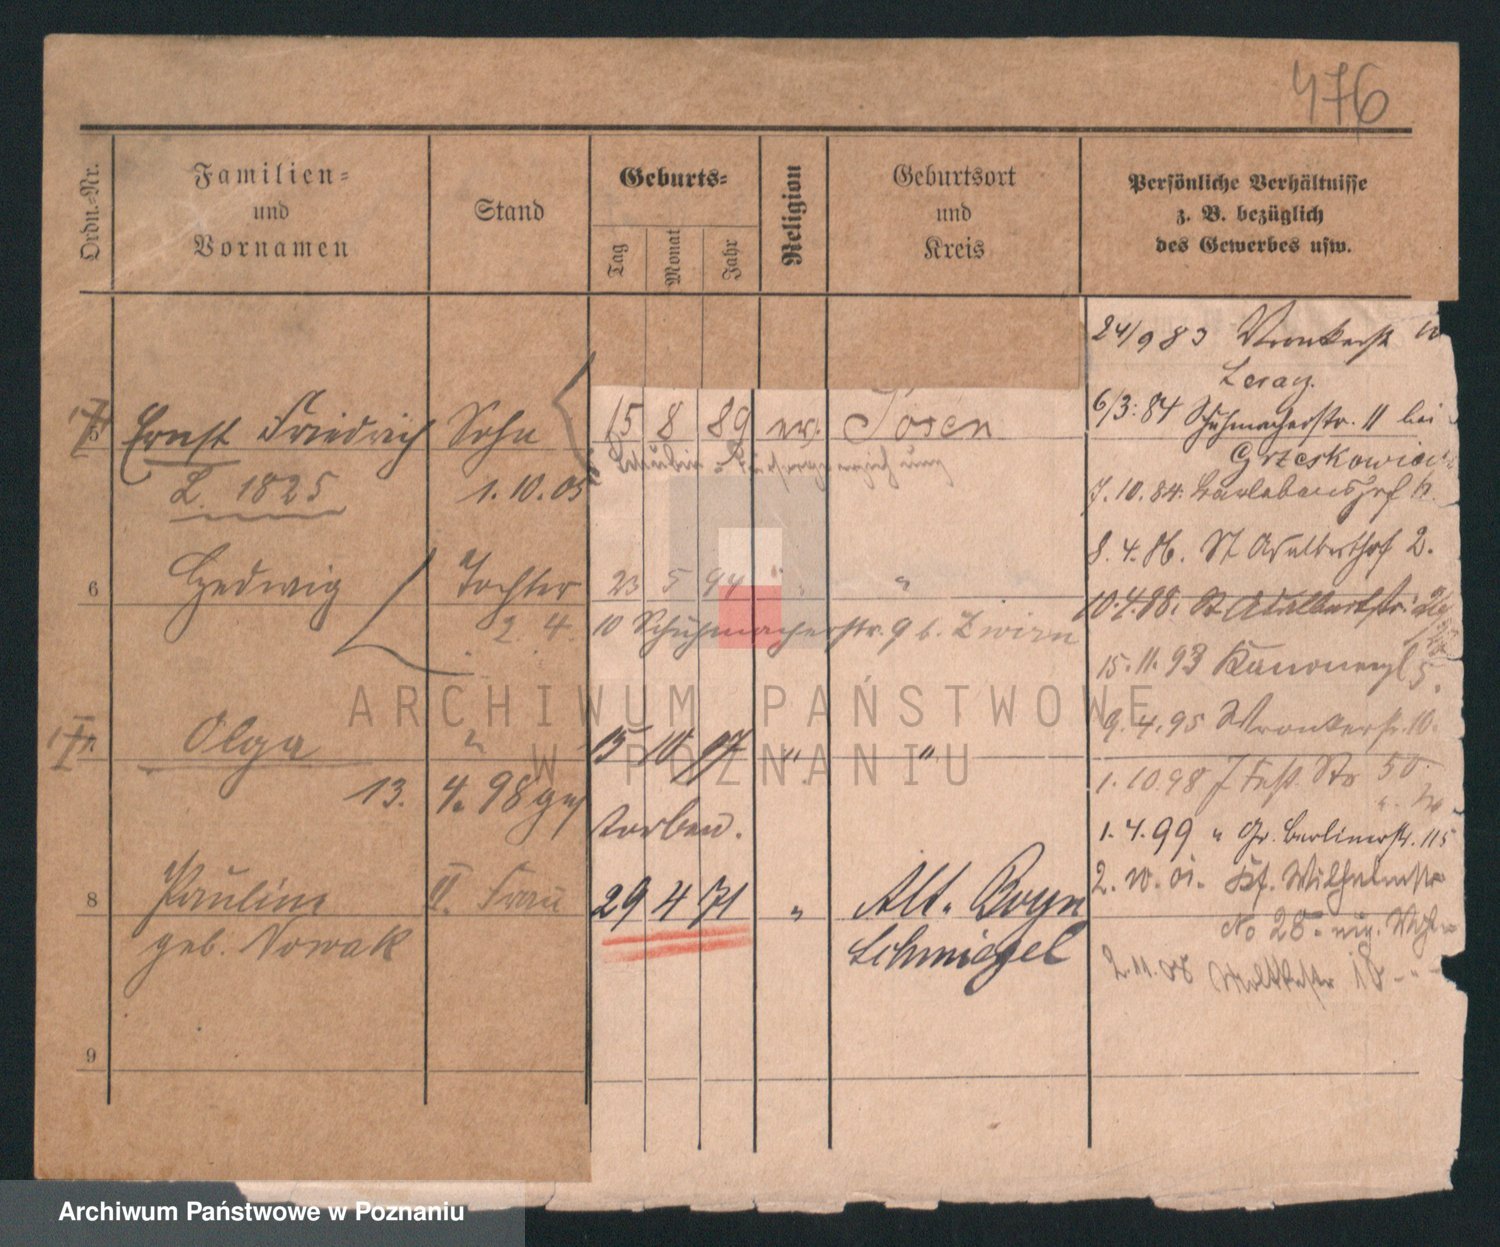 476
Ordn.-Nr.
Familien-
und
Vornamen
Stand
Geburts-
Tag
Monat
Jahr
Religion
Geburtsort
und
Kreis
Persönliche Verhältnisse
z. B. bezüglich
des Gewerbes usw.
5 Ernst Friedrich Sohn 15 8 89 ev. Posen
L. 1825 1.10.05
6 Hedwig Tochter 23 5 94 " "
2. 4. 10 Schuhmacherstr. 9 b. Zwirn
Olga " 15 10 97 " "
13. 4. 98 ges
torben.
8 Pauline II. Frau 29 4 71 " Alt. Boyn
geb. Nowak Schmiegel
9
24/9 83 Wronkerstr. 10
6/3. 84 Schuhmacherstr. 11 bei
Grzeskowiak
7.10.84.
8. 4. 86. St Adalberthof 2.
10.4.88. St Adalbertstr.
15.11.93 Kanonenpl 5.
9.4.95 Wronkerstr. 10.
1.10.98 50.
1.4.99 " Gr. Berlinerstr. 115
2.10.01. Wilhelmstr
No 28
2.11.08 Moltkestr 18
ARCHIWUM PAŃSTWOWE
W POZNANIU
Archiwum Państwowe w Poznaniu